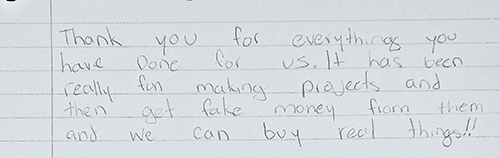 Thank you for everything you
have Done for us. It has been
really fun making projects and
then get fake money from them
and we can buy real things!!